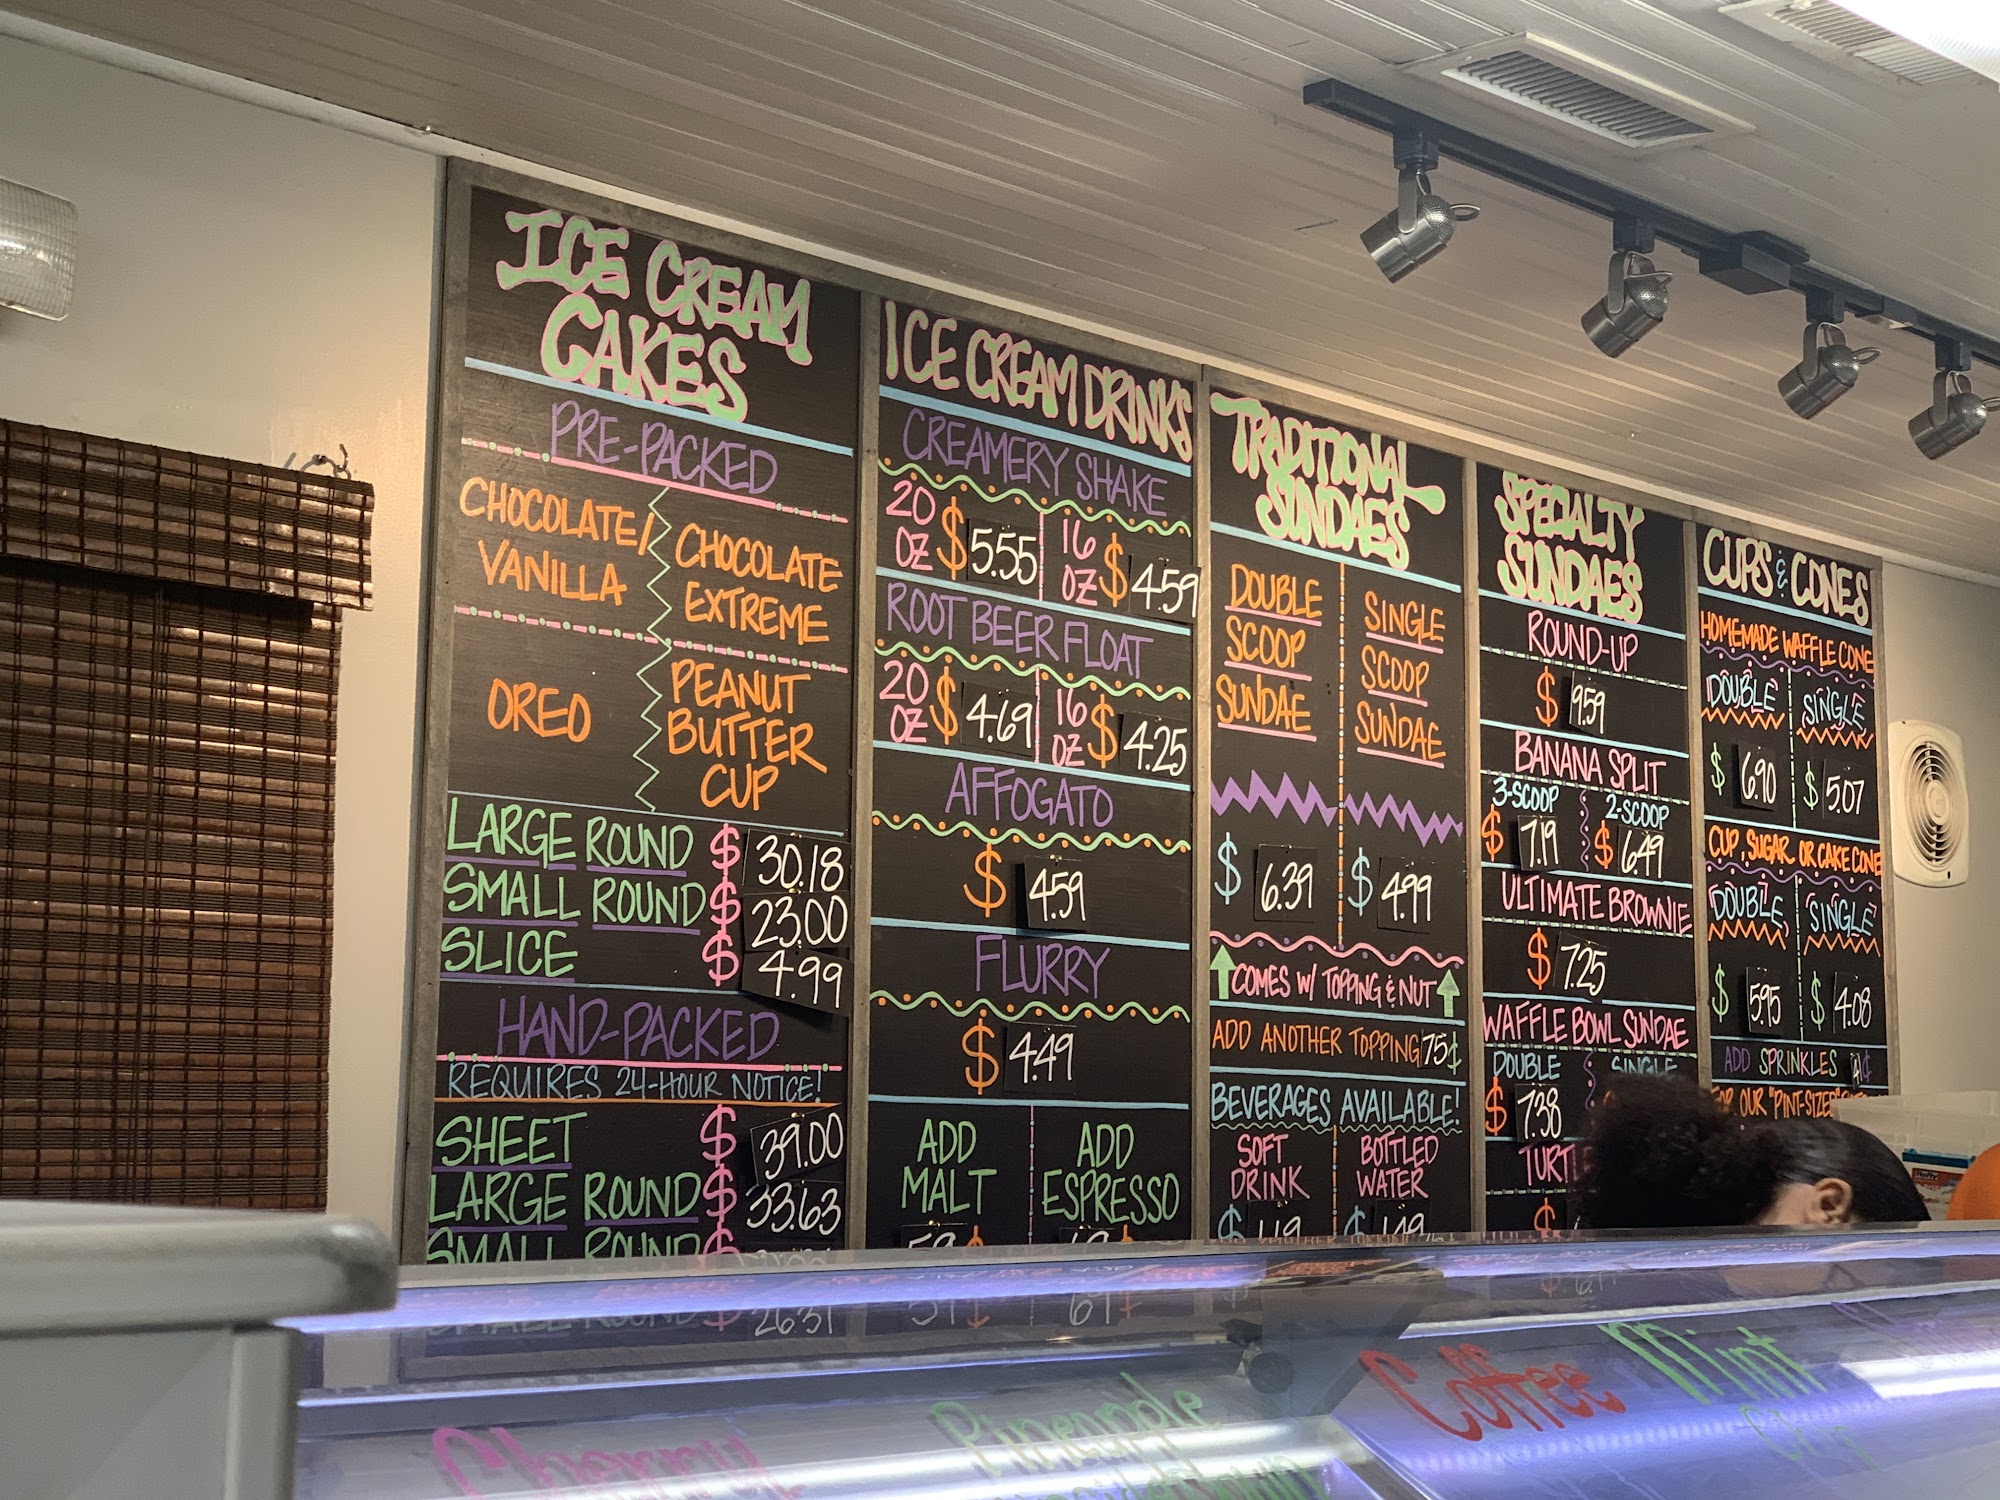 ICE CREAM
CAKES
PRE-PACKED
CHOCOLATE/
VANILLA
CHOCOLATE
EXTREME
OREO
PEANUT
BUTTER
CUP
LARGE ROUND $ 30.18
SMALL ROUND $ 23.00
SLICE $ 4.99
HAND-PACKED
REQUIRES 24-HOUR NOTICE!
SHEET $ 39.00
LARGE ROUND $ 33.63
SMALL ROUND $
ICE CREAM DRINKS
CREAMERY SHAKE
20 OZ $ 5.55
16 OZ $ 4.59
ROOT BEER FLOAT
20 OZ $ 4.69
16 OZ $ 4.25
AFFOGATO
$ 4.59
FLURRY
$ 4.49
ADD
MALT
59¢
ADD
ESPRESSO
69¢
TRADITIONAL
SUNDAES
DOUBLE
SCOOP
SUNDAE
$ 6.39
SINGLE
SCOOP
SUNDAE
$ 4.99
COMES W/ TOPPING & NUT
ADD ANOTHER TOPPING 75¢
BEVERAGES AVAILABLE!
SOFT
DRINK
$ 1.19
BOTTLED
WATER
$ 1.49
SPECIALTY
SUNDAES
ROUND-UP
$ 9.59
BANANA SPLIT
3-SCOOP
$ 7.19
2-SCOOP
$ 6.49
ULTIMATE BROWNIE
$ 7.25
WAFFLE BOWL SUNDAE
DOUBLE
$ 7.38
SINGLE
$
CUPS & CONES
HOMEMADE WAFFLE CONE
DOUBLE
$ 6.90
SINGLE
$ 5.07
CUP, SUGAR OR CAKE CONE
DOUBLE
$ 5.95
SINGLE
$ 4.08
ADD SPRINKLES
FOR OUR "PINT-SIZED"
26.31
Cherry
Pineapple
Coffee
Mint
Chip